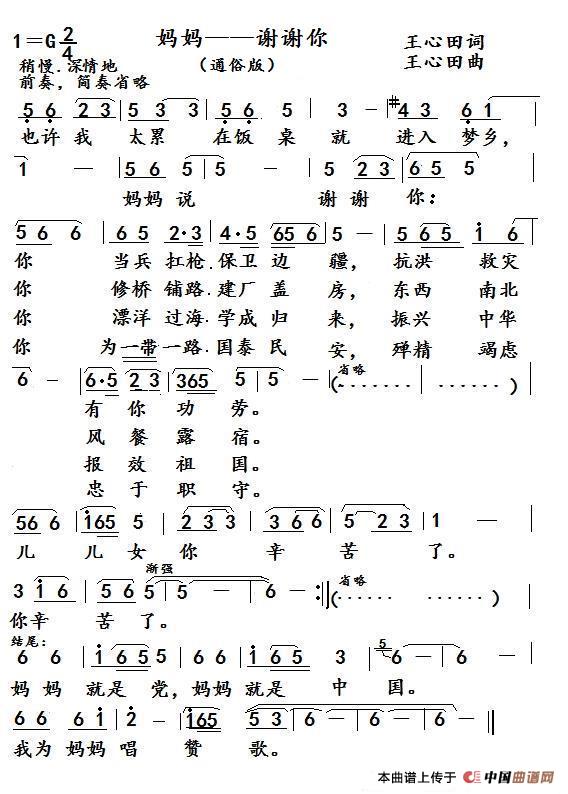 1=G 2/4 妈妈——谢谢你 王心田词
稍慢.深情地 （通俗版） 王心田曲
前奏，简奏省略
5 6 2 3 | 5 3 3 | 5 6 5 | 3 — | #4 3 6 1 |
也许我 太累 在饭桌就 进入梦乡，
1 — | 5 6 5 5 | 5 — | 5 2 3 | 6 5 5 |
妈妈说 谢谢你：
5 6 6 | 6 5 2·3 | 4·5 6 5 6 | 5 — | 5 5 | 1 6 |
你 当兵扛枪.保卫边疆，抗洪救灾
你 修桥铺路.建厂盖房，东西南北
你 漂洋过海.学成归来，振兴中华
你 为一带一路.国泰民安，殚精竭虑
6 — | 6·5 2 3 | 3 6 5 | 5 5 — | 省略 (······ | ······ )
有你功劳。
风餐露宿。
报效祖国。
忠于职守。
5 6 6 | 1 6 5 5 | 2 3 3 | 3 6 6 | 5 2 3 | 1 — |
儿 儿女你 辛苦 了。
渐强 省略
3 1 6 | 5 6 | 5 5 — | 6 — :| (······ | ······ )
你辛 苦了。
结尾：
6 6 | 1 6 5 | 5 6 6 | 1 6 5 3 | 5 6 — | 6 — |
妈妈 就是党，妈妈就是中 国。
6 6 6 6 1 | 2 — | 1 6 5 | 5 3 6 — | 6 — ‖
我为妈妈唱 赞 歌。
本曲谱上传于 中国曲谱网